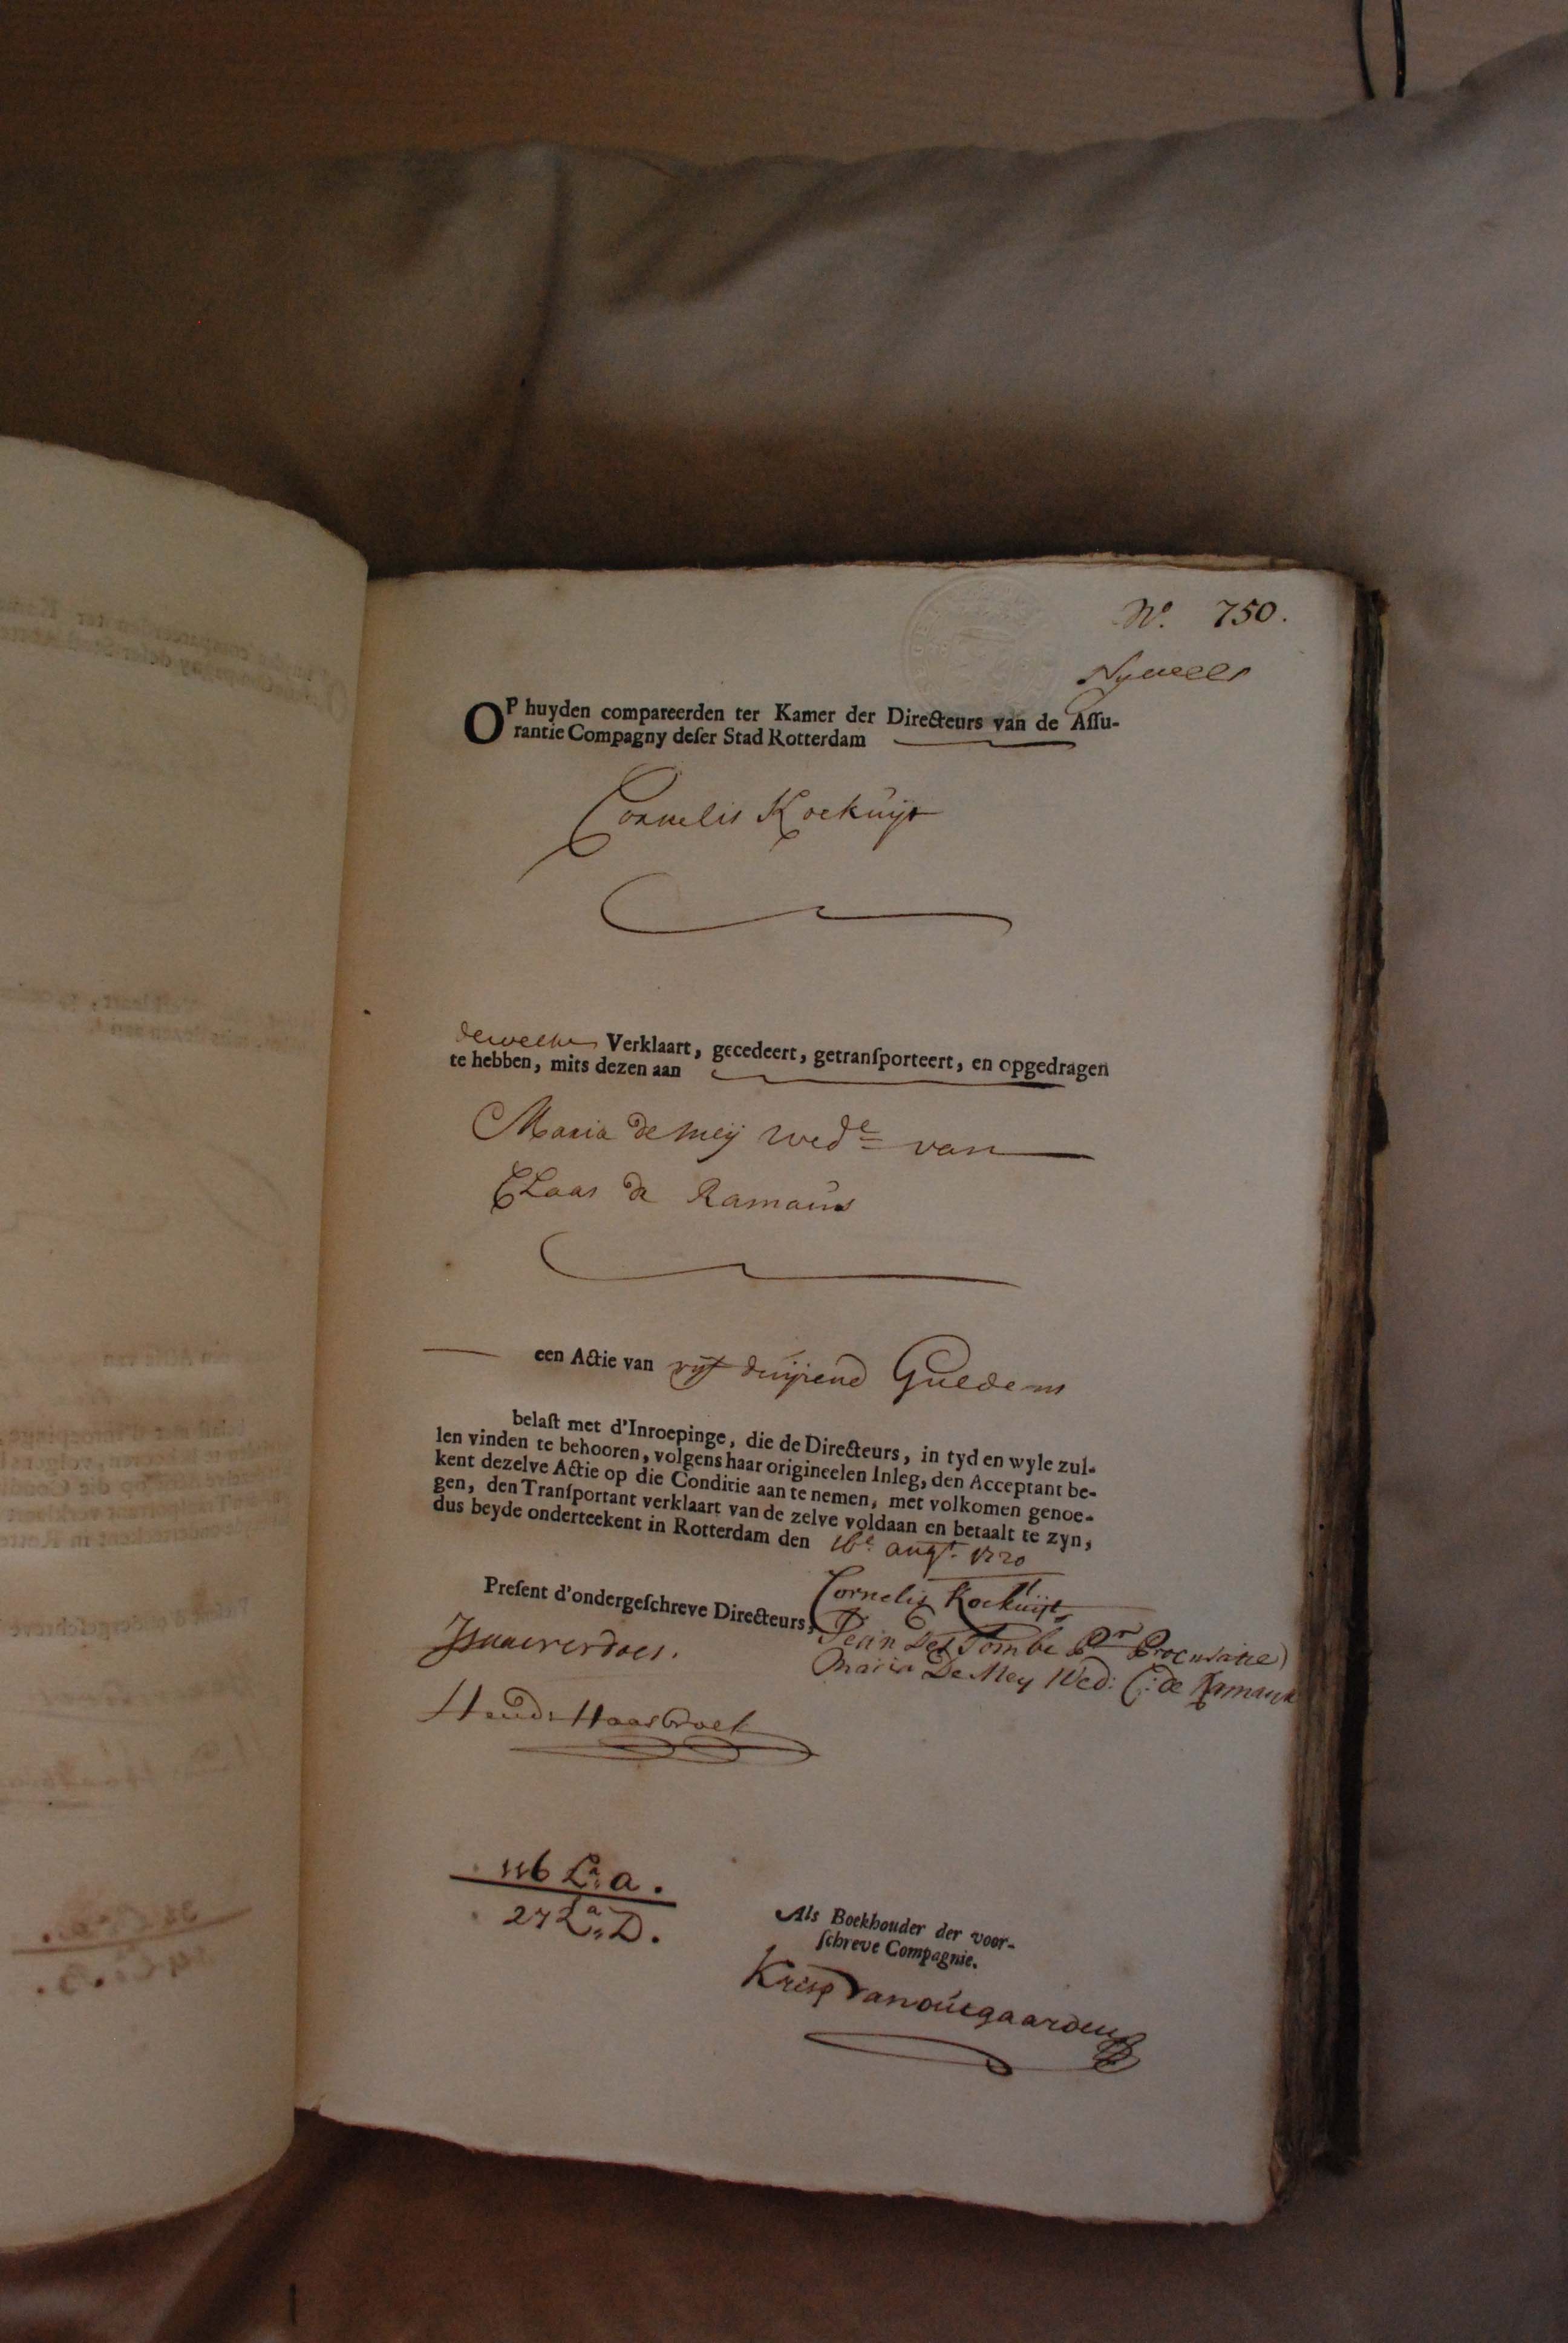 N.º 750.
Nyvelt
OP huyden compareerden ter Kamer der Directeurs van de Aſſu-
rantie Compagny deſer Stad Rotterdam
Cornelis Kockuijt
dewelke Verklaart, gecedeert, getranſporteert, en opgedragen
te hebben, mits dezen aan
Maria de Meij wedᵉ van
CLaas de Ramaus
een Actie van vijf duijsend Guldens
belaſt met d'Inroepinge, die de Directeurs, in tyd en wyle zul-
len vinden te behooren, volgens haar origineelen Inleg, den Acceptant be-
kent dezelve Actie op die Conditie aan te nemen, met volkomen genoe-
gen, den Tranſportant verklaart van de zelve voldaan en betaalt te zyn,
dus beyde onderteekent in Rotterdam den 16ᵉ augᵗ 1720
Preſent d'ondergeſchreve Directeurs,
Cornelis Kockuijt
Jean Des Tombe Pʳ Procuratie
Maria De Mey Wed: C: de
Hend: Haasbroek
116 Lᵃ a.
27 Lᵃ D.
Als Boekhouder der voor-
ſchreve Compagnie.
Krisp Vanouegaarden